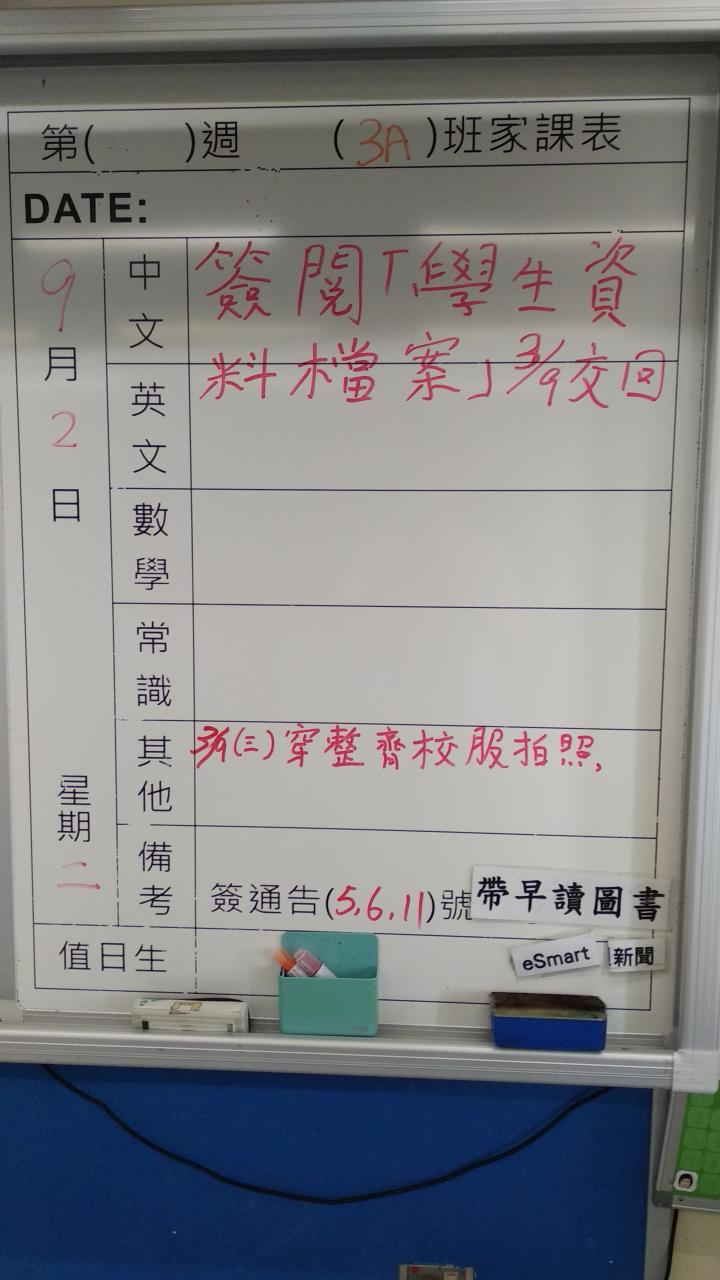 第(　　)週　(3A)班家課表
DATE:
9月2日　星期二
中文　簽閱「學生資
料檔案」3/9交回
英文
數學
常識
其他　3/9(三)穿整齊校服拍照,
備考　簽通告(5,6,11)號　帶早讀圖書
eSmart　新聞
值日生